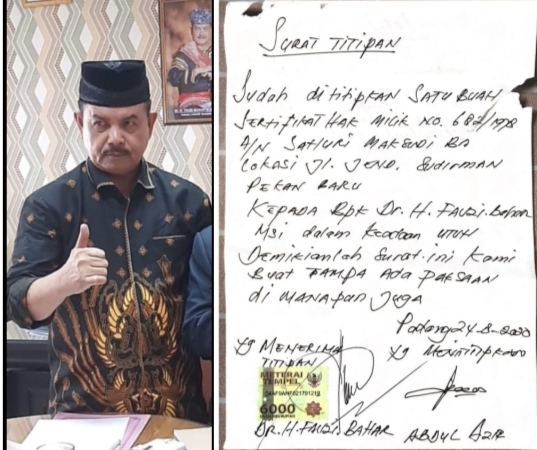 SURAT TITIPAN
Sudah dititipkan SATU BUAH
SERTIFIKAT HAK MILIK NO. 687/1978
A/N SATIURI MAKSUDI BA
LOKASI Jl. JEND. SUDIRMAN
PEKAN BARU
KEPADA Bpk Dr. H. FAUZI. BAHAR
MSi dalam keadaan UTUH
Demikianlah surat ini kami
Buat TAMPA ADA PAKSAAN
di MANAPUN JUGA
Padang 24-8-2020
Yg MENERIMA Yg MENITIPKAN
TITIPAN
METERAI
TEMPEL
6000
DR. H. FAUZI. BAHAR ABDUL AZIR